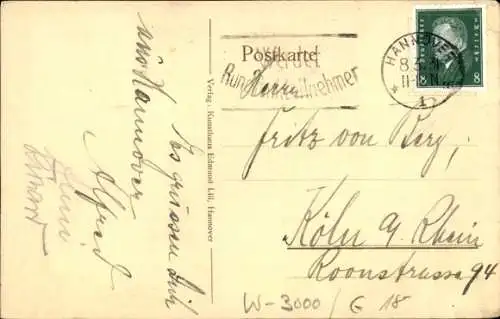 Postkarte
Werdet
Rundfunkteilnehmer
HANNOVER
8
8
8
Herrn
Fritz von Berg,
Köln a/Rhein
Roonstrasse 94
W-3000/G 18
Verlag: Kunsthaus Edmund Lill, Hannover
Es grüssen Dich
aus Hannover
Alfred